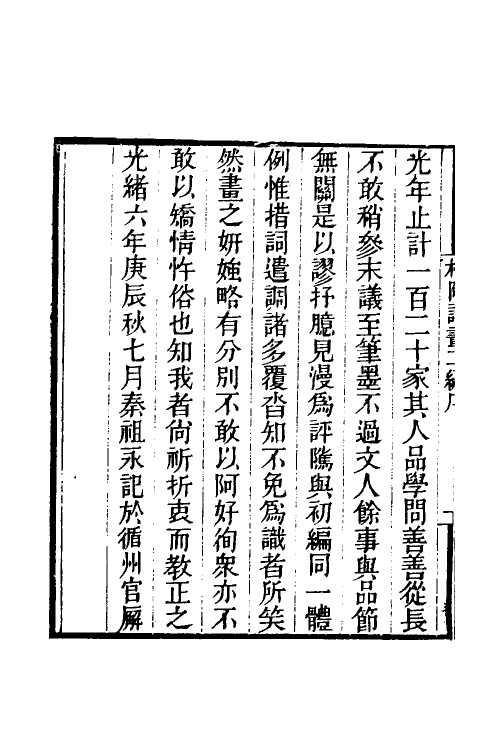 光年止計一百二十家其人品學問善善從長
不敢稍參末議至筆墨不過文人餘事與品節
無關是以謬抒臆見漫爲評隲與初編同一體
例惟措詞遣調諸多覆沓知不免爲識者所笑
然畫之妍媸略有分別不敢以阿好徇衆亦不
敢以矯情忤俗也知我者尙祈折衷而教正之
光緒六年庚辰秋七月秦祖永記於循州官廨